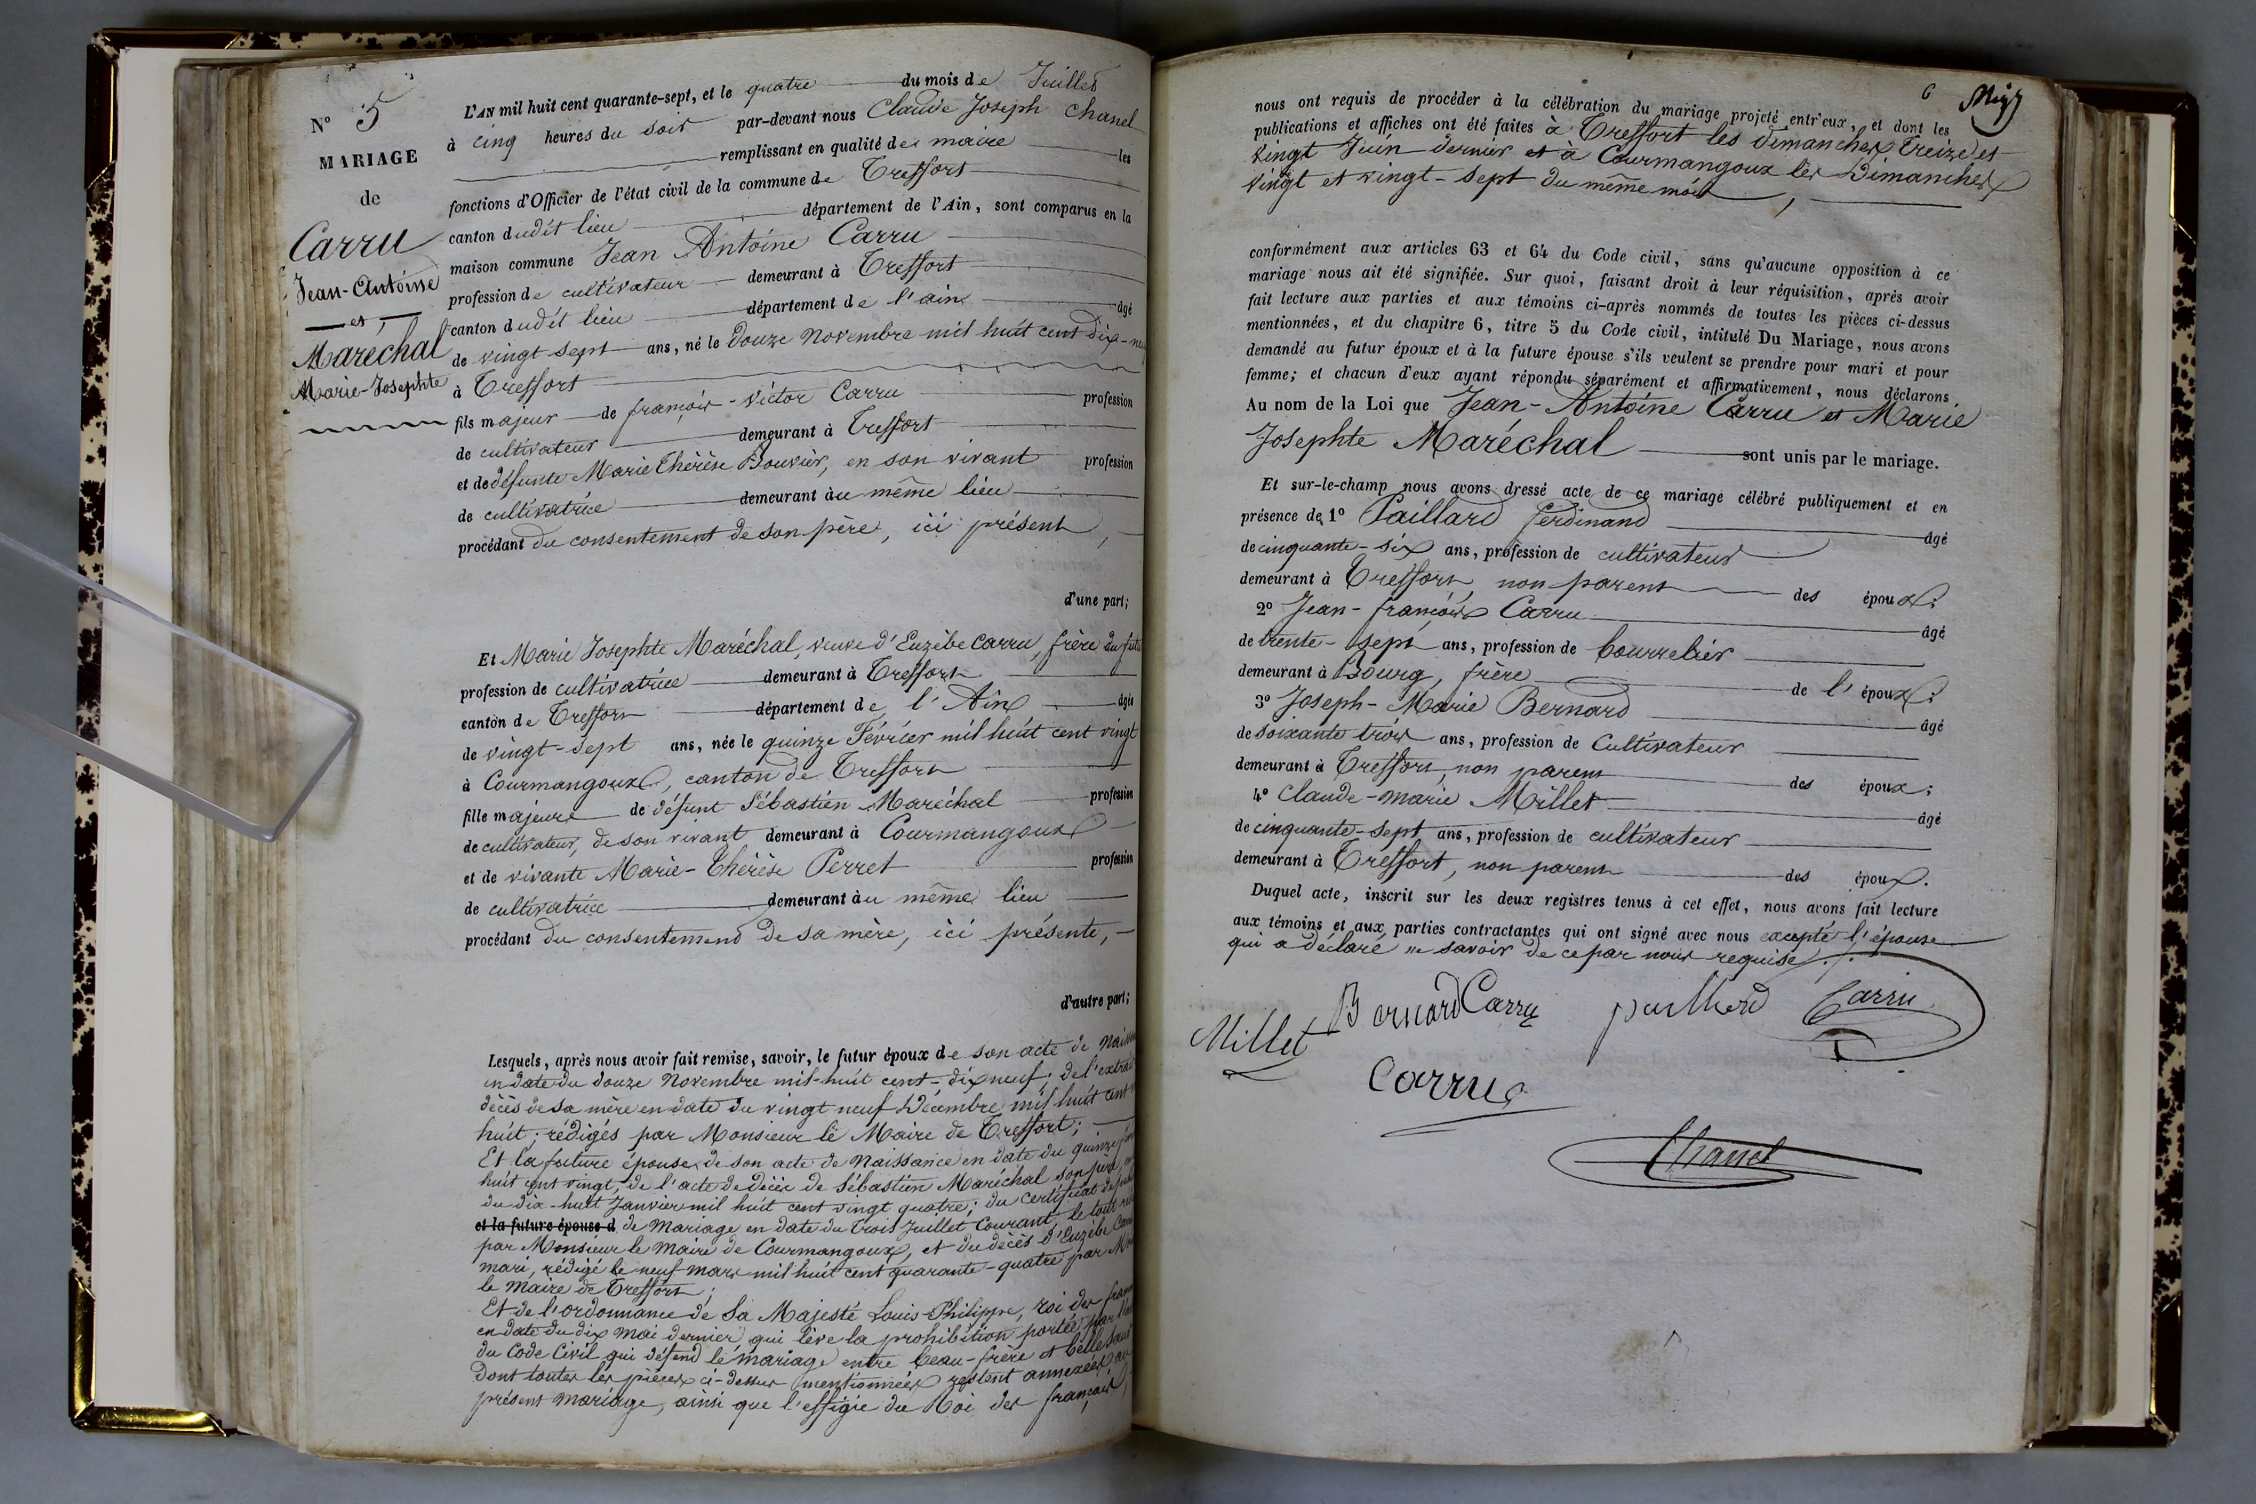 N° 5
MARIAGE
de
Carru
Jean-Antoine
et
Maréchal
Marie-Josephte
L'AN mil huit cent quarante-sept, et le quatre du mois de Juillet
à cinq heures du soir par-devant nous Claude Joseph Chanel
remplissant en qualité de maire les
fonctions d'Officier de l'état civil de la commune de Treffort
canton dudit lieu département de l'Ain, sont comparus en la
maison commune Jean Antoine Carru
profession de cultivateur demeurant à Treffort
canton dudit lieu département de l'ain âgé
de vingt sept ans, né le douze Novembre mil huit cent dix-neuf
à Treffort
fils majeur de françois-Victor Carru profession
de cultivateur demeurant à Treffort
et de défunte Marie Thérèse Bouvier, en son vivant profession
de cultivatrice demeurant au même lieu
procédant du consentement de son père, ici présent,
d'une part;
Et Marie Josephte Maréchal, veuve d'Euzèbe Carru, frère du futu
profession de cultivatrice demeurant à Treffort
canton de Treffort département de l'Ain âgée
de vingt-sept ans, née le quinze Février mil huit cent vingt
à Courmangoux, canton de Treffort
fille majeure de défunt Sébastien Maréchal profession
de cultivateur, de son vivant demeurant à Courmangoux
et de vivante Marie-Thérèse Perret profession
de cultivatrice demeurant au même lieu
procédant du consentement de sa mère, ici présente,
d'autre part;
Lesquels, après nous avoir fait remise, savoir, le futur époux de son acte de Nais
en date du douze Novembre mil-huit cent-dix neuf; de l'extrait
décès de sa mère en date du vingt neuf Décembre mil huit cent
huit; rédigés par Monsieur le Maire de Treffort;
Et la future épouse, de son acte de Naissance en date du quinze
huit cent vingt, de l'acte de décès de Sébastien Maréchal son père,
du dix-huit Janvier mil huit cent vingt quatre; du certificat de
et la future épouse d de Mariage en date du trois Juillet Courant, le tout
par Monsieur le Maire de Courmangoux, et du décès d'Euzèbe Carru
mari, rédigé le neuf mars mil huit cent quarante-quatre par M
le Maire de Treffort;
Et de l'ordonnance de Sa Majesté Louis-Philippe, roi des fran
en date du dix Mai dernier qui lève la prohibition portée par
du Code Civil qui défend le mariage entre beau-frère et belle sœur
Dont toutes les pièces ci-dessus mentionnées restent annexées au
présent mariage, ainsi que l'effigie du Roi des français,
6
nous ont requis de procéder à la célébration du mariage projeté entr'eux, et dont les
publications et affiches ont été faites à Treffort les dimanches treize et
vingt Juin dernier et à Courmangoux les Dimanches
vingt et vingt-sept du même mois,
conformément aux articles 63 et 64 du Code civil, sans qu'aucune opposition à ce
mariage nous ait été signifiée. Sur quoi, faisant droit à leur réquisition, après avoir
fait lecture aux parties et aux témoins ci-après nommés de toutes les pièces ci-dessus
mentionnées, et du chapitre 6, titre 5 du Code civil, intitulé Du Mariage, nous avons
demandé au futur époux et à la future épouse s'ils veulent se prendre pour mari et pour
femme; et chacun d'eux ayant répondu séparément et affirmativement, nous déclarons
Au nom de la Loi que Jean-Antoine Carru et Marie
Josephte Maréchal sont unis par le mariage.
Et sur-le-champ nous avons dressé acte de ce mariage célébré publiquement et en
présence de 1° Paillard Ferdinand âgé
de cinquante-six ans, profession de cultivateur
demeurant à Treffort, non parent des époux;
2° Jean-françois Carru âgé
de trente-sept ans, profession de bourrelier
demeurant à Bourg, frère de l'époux;
3° Joseph-Marie Bernard âgé
de soixante trois ans, profession de Cultivateur
demeurant à Treffort, non parent des époux;
4° Claude-Marie Millet âgé
de cinquante-sept ans, profession de cultivateur
demeurant à Treffort, non parent des époux.
Duquel acte, inscrit sur les deux registres tenus à cet effet, nous avons fait lecture
aux témoins et aux parties contractantes qui ont signé avec nous excepté l'épouse
qui a déclaré ne savoir de ce par nous requise.
Bernard Carru paillard Carru
Millet
Carru
Chanel